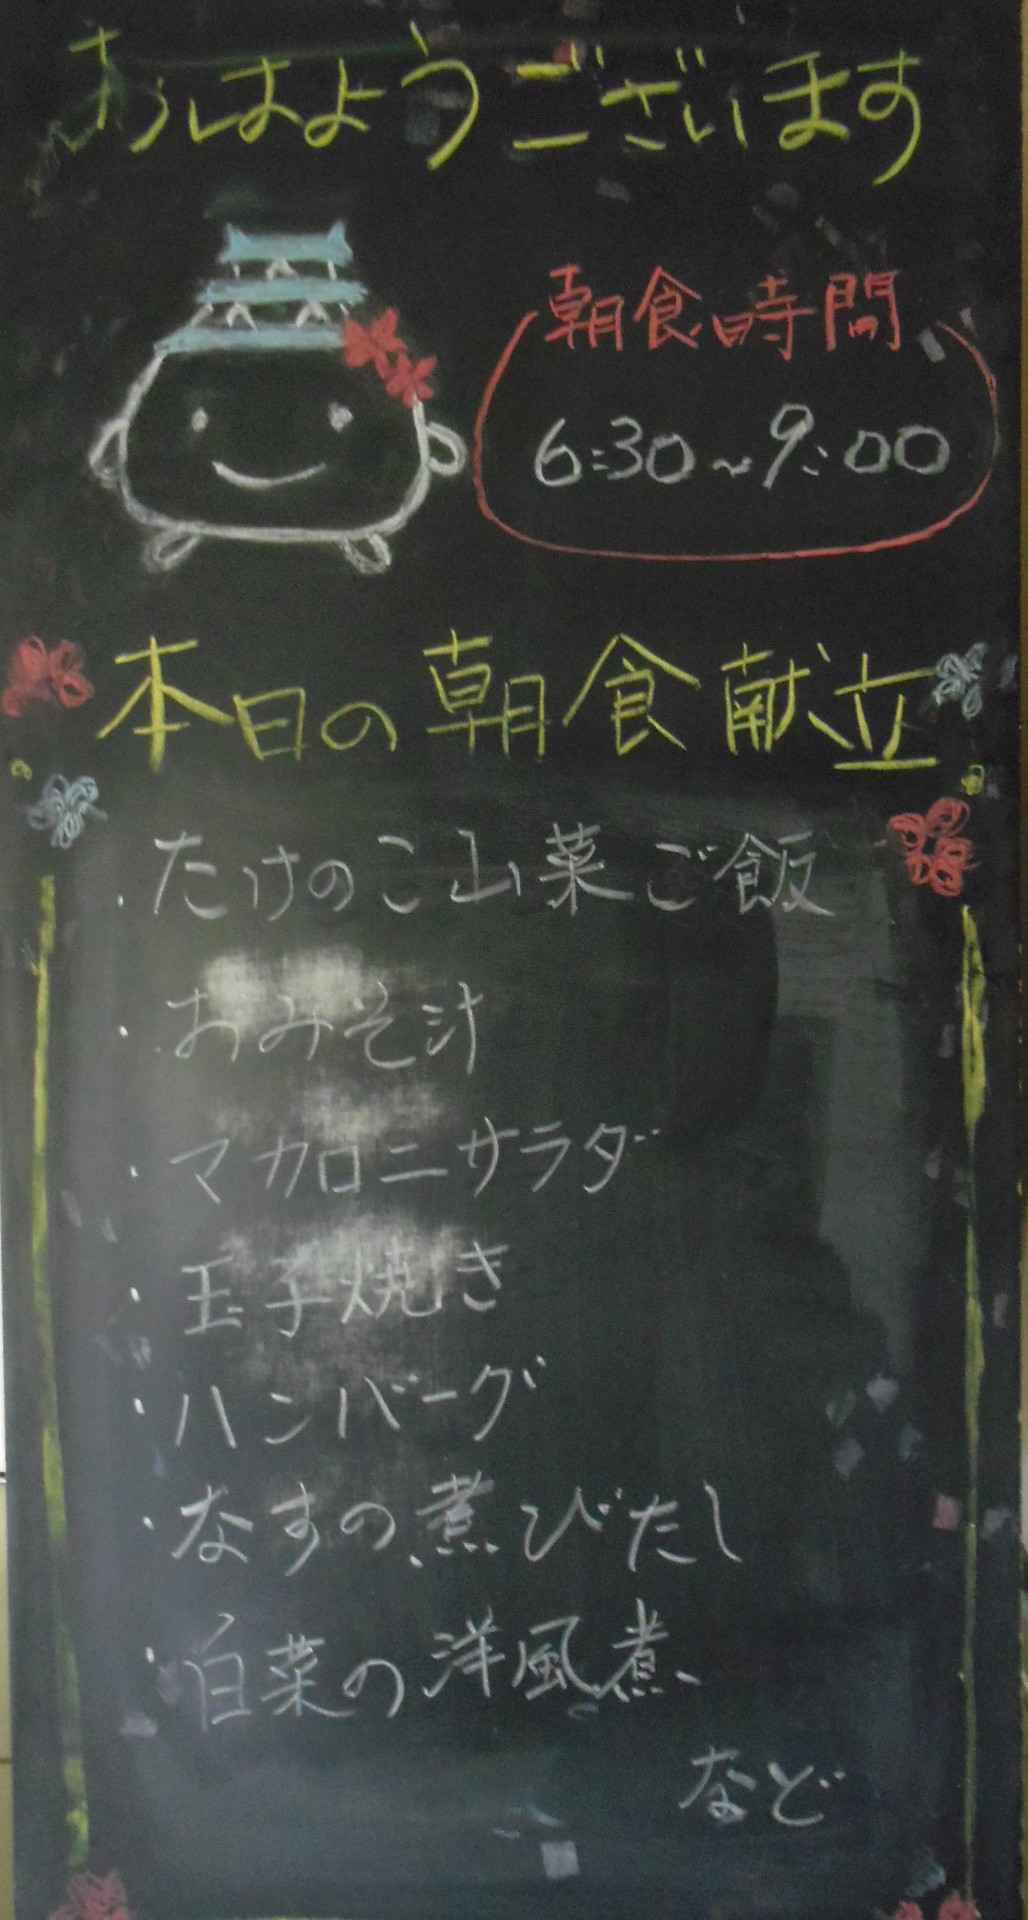 おはようございます
朝食時間
6:30～9:00
本日の朝食献立
・たけのこ山菜ご飯
・おみそ汁
・マカロニサラダ
・玉子焼き
・ハンバーグ
・なすの煮びたし
・白菜の洋風煮
など